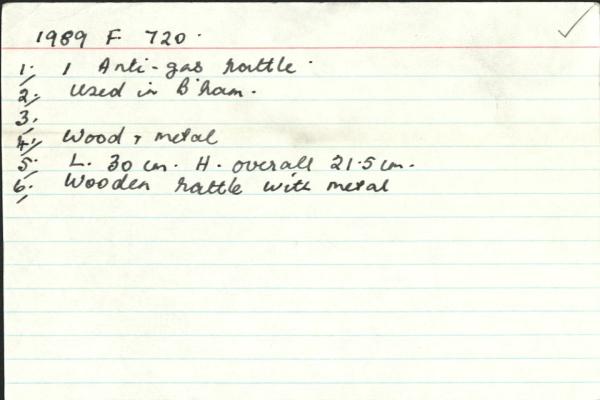 1989 F 720.
1. 1 Anti-gas rattle.
2. Used in B'ham.
3.
4. Wood + metal
5. L. 30 cm. H. overall 21.5 cm.
6. Wooden rattle with metal